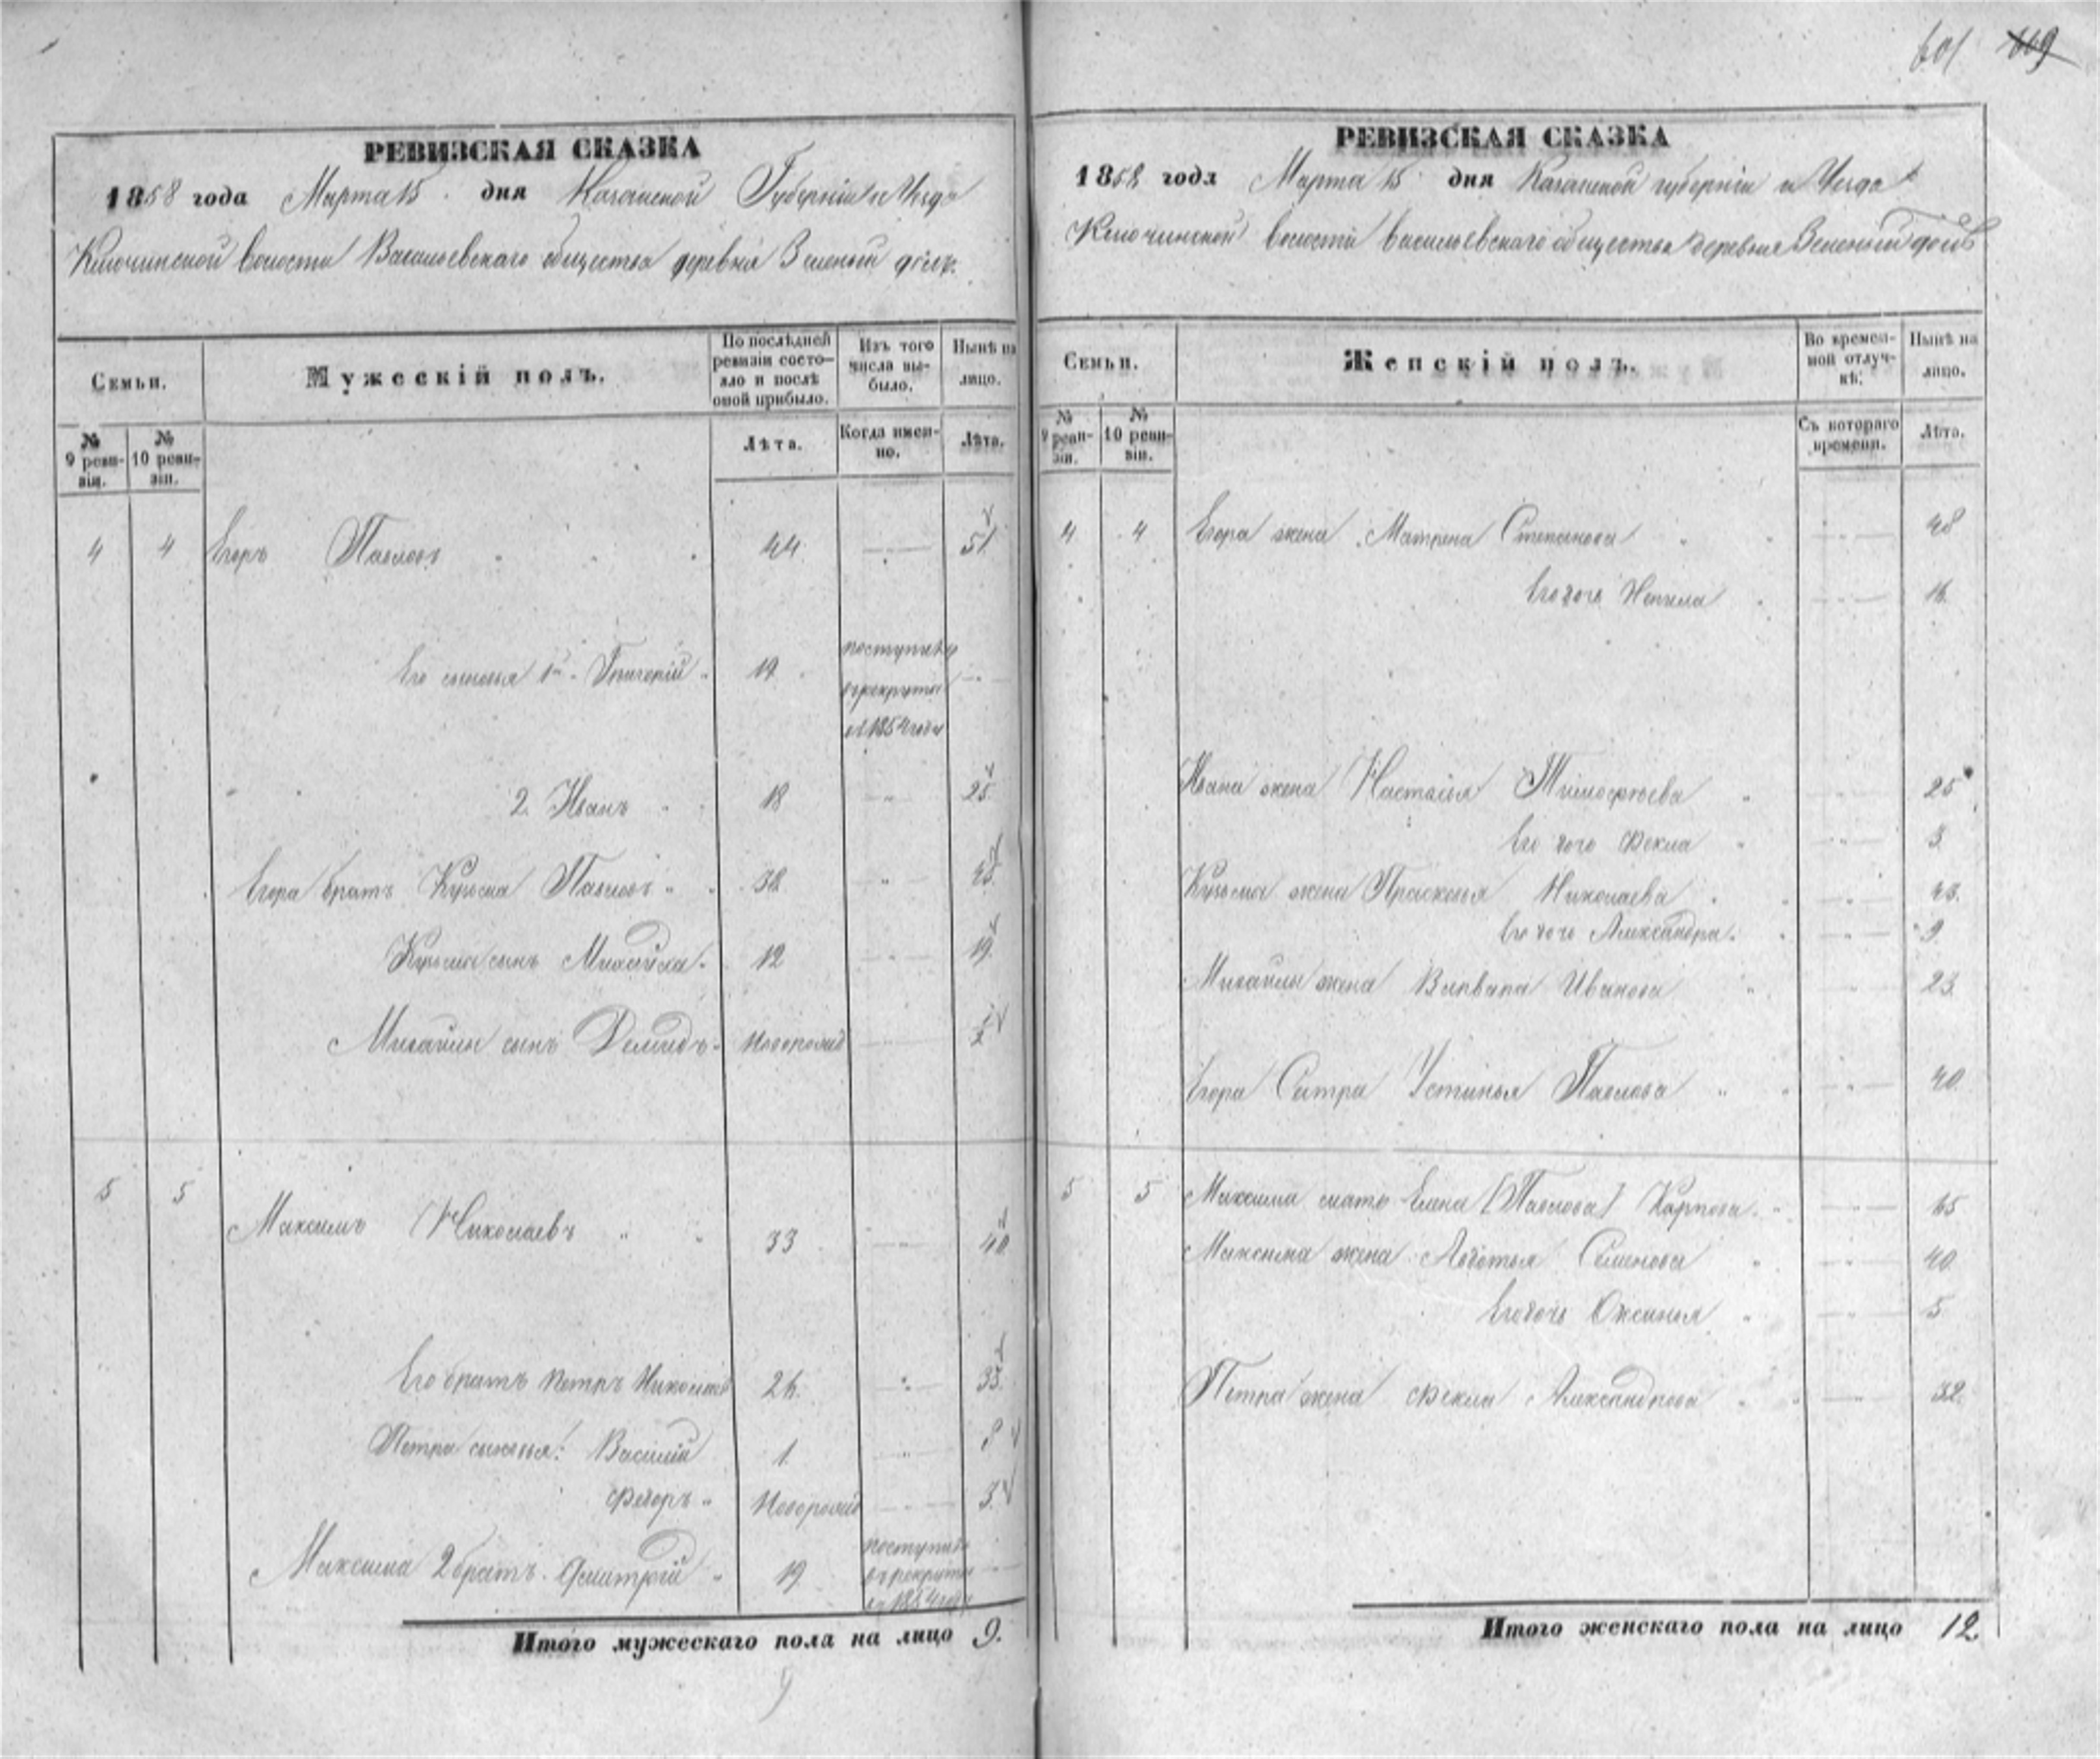 601 609
РЕВИЗСКАЯ СКАЗКА
1858 года Марта 15 дня Казанской Губернiи и Уезда
Ключинской волости Васильевскаго общества деревня Зеленый долъ.
Семьи.
Мужескiй полъ.
По послѣдней ревизiи состояло и послѣ оной прибыло.
Изъ того числа выбыло.
Нынѣ на лицо.
№ 9 ревизiи.
№ 10 ревизiи.
Лѣта.
Когда именно.
Лѣта.
4 4 Егоръ Павловъ 44 51
Его сыновья 1й Григорiй 19 поступилъ
въ рекруты
въ 1854 годе
2. Иванъ 18 25
Егора братъ Кузьма Павловъ 38 45
Кузьма сынъ Михайла 12 19
Михайлы сынъ Демидъ Новорожд
5 5 Максимъ Николаевъ 33 40
Его братъ Петръ Николаевъ 26. 33.
Петра сыновья: Василiй 1 8
Федоръ Новорожд 3
Максима 2 братъ Дмитрiй 19 поступилъ
въ рекруты
въ 1854 годе
Итого мужескаго пола на лицо 9.
9
РЕВИЗСКАЯ СКАЗКА
1858 года Марта 15 дня Казанской губернiи и Уезда
Ключинской волости Васильевскаго общества деревня Зеленый долъ
Семьи.
Женскiй полъ.
Во временной отлучкѣ.
Нынѣ на лицо.
№ 9 ревизiи.
№ 10 ревизiи.
Съ котораго времени.
Лѣта.
4 4 Егора жена Матрена Степанова 48
Его дочь Ненила 16.
Ивана жена Настасья Тимофѣева 25
Его дочь Фекла 3
Кузьмы жена Прасковья Николаева 43.
Его дочь Александра 9
Михайлы жена Варвара Иванова 23.
Егора Систра Устинья Павлова 40
5 5 Максима мать Елена [Павлова] Карпова 65
Максима жена Авдотья Семенова 40
Его дочь Оксинья 5
Петра жена Фекла Александрова 32.
Итого женскаго пола на лицо 12